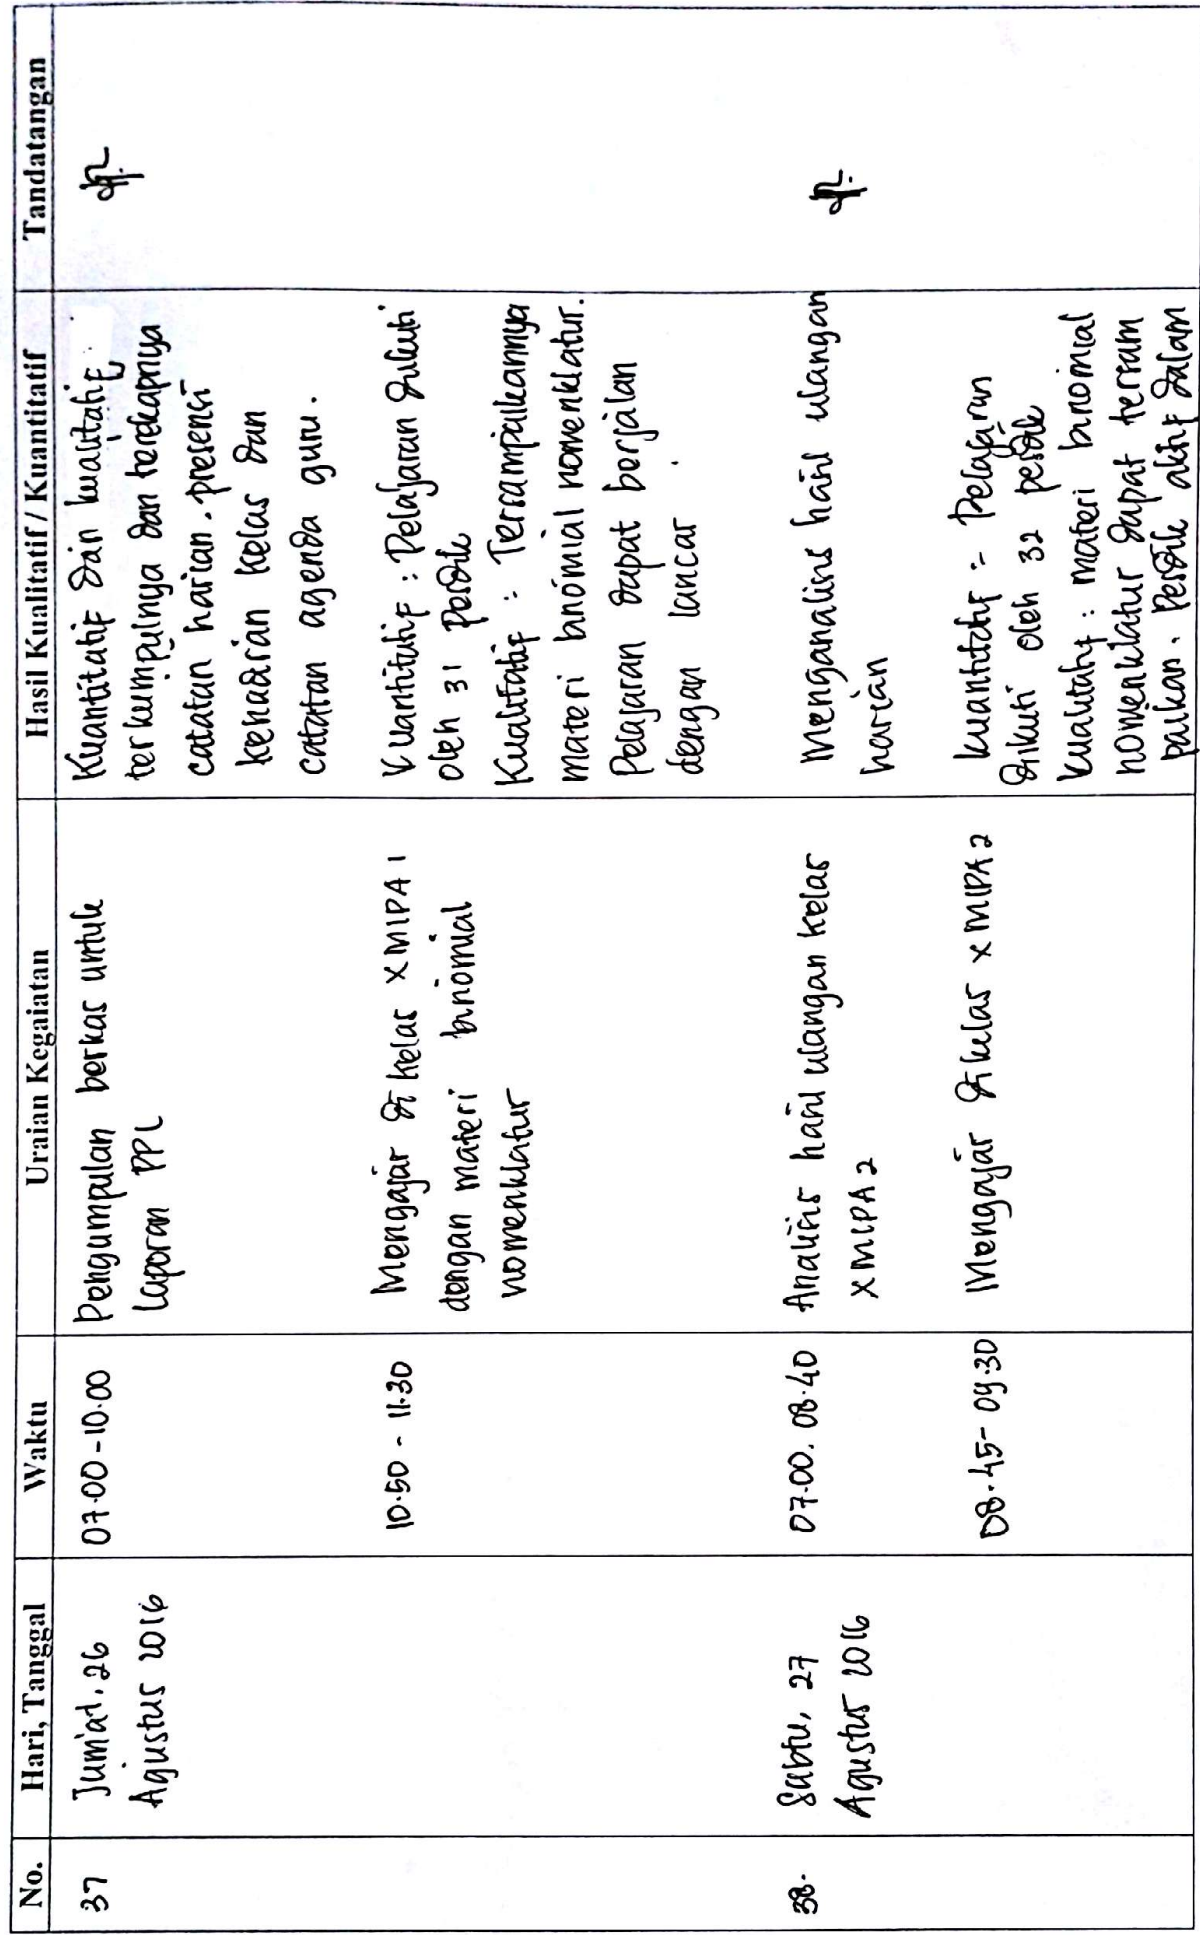 No. Hari, Tanggal Waktu Uraian Kegaiatan Hasil Kualitatif / Kuantitatif Tandatangan
37
Jum'at, 26
Agustus 2016
07.00 - 10.00
Pengumpulan berkas untuk
laporan PPL
Kuantitatif dan kualitatif :
terkumpulnya dan terekapnya
catatan harian, presensi
kehadiran kelas dan
catatan agenda guru.
10.50 - 11.30
Mengajar di kelas X MIPA 1
dengan materi binomial
nomenklatur
Kuantitatif : Pelajaran diikuti
oleh 31 Pesdik
Kualitatif : Tersampaikannya
materi binomial nomenklatur.
Pelajaran dapat berjalan
dengan lancar
38.
Sabtu, 27
Agustus 2016
07.00. 08.40
Analisis hasil ulangan kelas
X MIPA 2
Menganalisis hasil ulangan
harian
08.45 - 09.30
Mengajar di kelas X MIPA 2
kuantitatif : Pelajaran
diikuti oleh 32 pesdik
kualitatif : materi binomial
nomenklatur dapat tersam
paikan. Pesdik aktif dalam